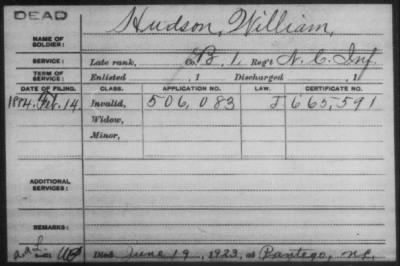 DEAD
NAME OF SOLDIER: Hudson, William,
SERVICE: Late rank, Co. B, 1 Reg't N. C. Inf.
TERM OF SERVICE: Enlisted , 1 Discharged , 1
DATE OF FILING. CLASS. APPLICATION NO. LAW. CERTIFICATE NO.
1884, Feb. 14 Invalid, 506,083 J 665,591
Widow,
Minor,
ADDITIONAL SERVICES:
REMARKS:
Died June 19, 1923, at Pantego, N.C.